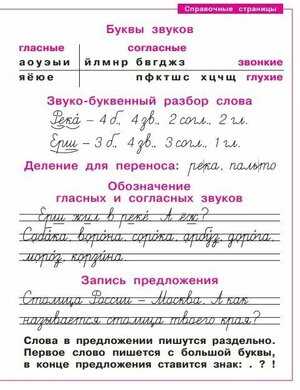 Справочные страницы
Буквы звуков
гласные согласные
а о у э ы и й л м н р б в г д ж з звонкие
я ё ю е п ф к т ш с х ц ч щ глухие
Звуко-буквенный разбор слова
Река́ – 4 б., 4 зв., 2 согл., 2 гл.
Ерш – 3 б., 4 зв., 3 согл., 1 гл.
Деление для переноса: река, пальто
Обозначение
гласных и согласных звуков
Ерш жил в реке. А еж?
Собака, ворона, сорока, арбуз, дорога,
мороз, корзина.
Запись предложения
Столица России – Москва. А как
называется столица твоего края?
Слова в предложении пишутся раздельно.
Первое слово пишется с большой буквы,
в конце предложения ставится знак: . ? !